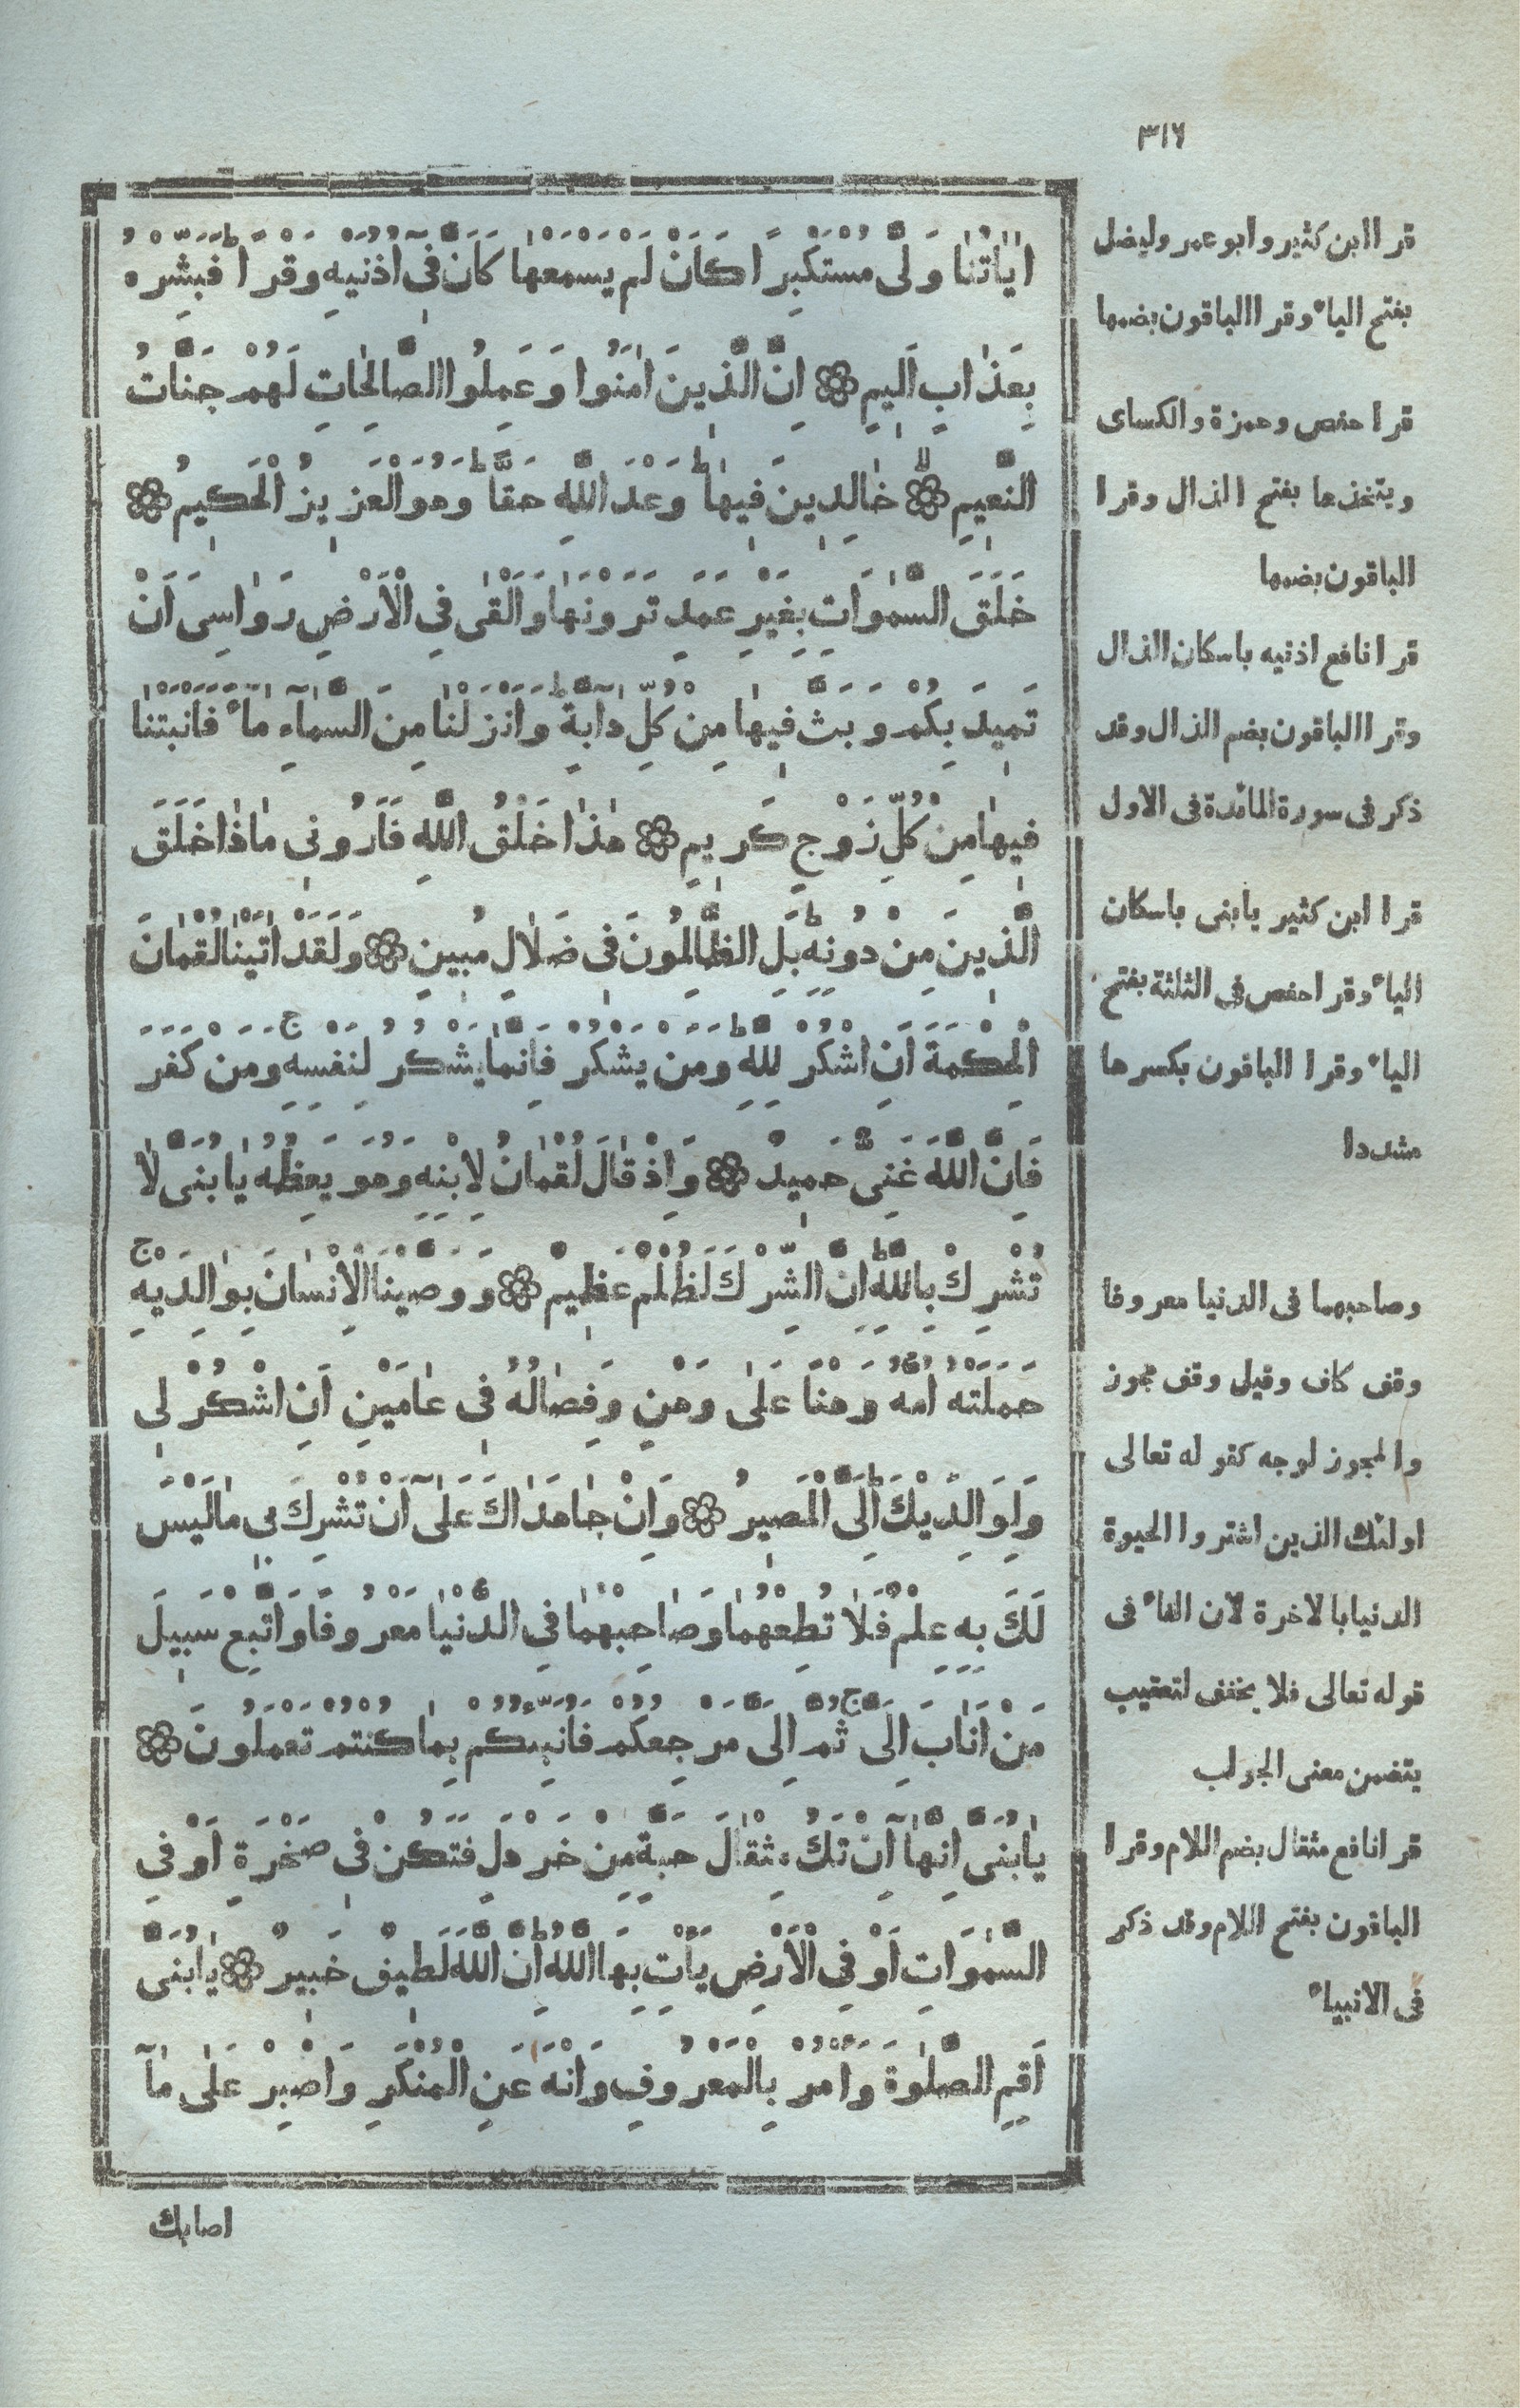 ٣١٦
اٰيَاتُنٰا وَلّٰى مُسْتَكْبِرًا كَاَنْ لَمْ يَسْمَعْهٰا كَاَنَّ فٖٓى اُذُنَيْهِ وَقْرًاۚ فَبَشِّرْهُ
بِعَذٰابٍ اَلٖيمٍ ۞ اِنَّ الَّذٖينَ اٰمَنُوا وَعَمِلُوا الصَّالِحٰاتِ لَهُمْ جَنَّاتُ
النَّعٖيمِ ۞ خٰالِدٖينَ فٖيهٰاؕ وَعْدَ اللّٰهِ حَقًّاؕ وَهُوَ الْعَزٖيزُ الْحَكٖيمُ ۞
خَلَقَ السَّمٰوَاتِ بِغَيْرِ عَمَدٍ تَرَوْنَهٰا وَاَلْقٰى فِى الْاَرْضِ رَوٰاسِىَ اَنْ
تَمٖيدَ بِكُمْ وَبَثَّ فٖيهٰا مِنْ كُلِّ دٰآبَّةٍؕ وَاَنْزَلْنٰا مِنَ السَّمٰٓاءِ مٰٓاءً فَاَنْبَتْنٰا
فٖيهٰا مِنْ كُلِّ زَوْجٍ كَرٖيمٍ ۞ هٰذٰا خَلْقُ اللّٰهِ فَاَرُونٖى مٰاذٰا خَلَقَ
الَّذٖينَ مِنْ دُونِهٖؕ بَلِ الظّٰالِمُونَ فٖى ضَلٰالٍ مُبٖينٍ ۞ وَلَقَدْ اٰتَيْنٰا لُقْمٰانَ
الْحِكْمَةَ اَنِ اشْكُرْ لِلّٰهِؕ وَمَنْ يَشْكُرْ فَاِنَّمٰا يَشْكُرُ لِنَفْسِهٖۚ وَمَنْ كَفَرَ
فَاِنَّ اللّٰهَ غَنِىٌّ حَمٖيدٌ ۞ وَاِذْ قٰالَ لُقْمٰانُ لِابْنِهٖ وَهُوَ يَعِظُهُ يٰا بُنَىَّ لٰا
تُشْرِكْ بِاللّٰهِؕ اِنَّ الشِّرْكَ لَظُلْمٌ عَظٖيمٌ ۞ وَوَصَّيْنَا الْاِنْسٰانَ بِوٰالِدَيْهِۚ
حَمَلَتْهُ اُمُّهُ وَهْنًا عَلٰى وَهْنٍ وَفِصٰالُهُ فٖى عٰامَيْنِ اَنِ اشْكُرْ لٖى
وَلِوٰالِدَيْكَؕ اِلَىَّ الْمَصٖيرُ ۞ وَاِنْ جٰاهَدٰاكَ عَلٰٓى اَنْ تُشْرِكَ بٖى مٰا لَيْسَ
لَكَ بِهٖ عِلْمٌ فَلٰا تُطِعْهُمٰا وَصٰاحِبْهُمٰا فِى الدُّنْيٰا مَعْرُوفًا وَاتَّبِعْ سَبٖيلَ
مَنْ اَنٰابَ اِلَىَّۚ ثُمَّ اِلَىَّ مَرْجِعُكُمْ فَاُنَبِّئُكُمْ بِمٰا كُنْتُمْ تَعْمَلُونَ ۞
يٰا بُنَىَّ اِنَّهٰٓا اِنْ تَكُ مِثْقٰالَ حَبَّةٍ مِنْ خَرْدَلٍ فَتَكُنْ فٖى صَخْرَةٍ اَوْ فِى
السَّمٰوَاتِ اَوْ فِى الْاَرْضِ يَأْتِ بِهَا اللّٰهُؕ اِنَّ اللّٰهَ لَطٖيفٌ خَبٖيرٌ ۞ يٰا بُنَىَّ
اَقِمِ الصَّلٰوةَ وَأْمُرْ بِالْمَعْرُوفِ وَانْهَ عَنِ الْمُنْكَرِ وَاصْبِرْ عَلٰى مٰٓا
اصابك
قرا ابن كثير وابو عمر وليضل
بفتح الياء وقرا الباقون بضمها
قرا حفص وحمزة والكساى
ويتخذها بفتح الذال وقرا
الباقون بضمها
قرا نافع اذنيه باسكان الذال
وقرا الباقون بضم الذال وقد
ذكر فى سورة المائدة فى الاول
قرا ابن كثير يابنى باسكان
الياء وقرا حفص فى الثلثة بفتح
الياء وقرا الباقون بكسرها
مشددا
وصاحبهما فى الدنيا معروفا
وقف كاف وقيل وقف مجوز
والمجوز لوجه كقوله تعالى
اولئك الذين اشتروا الحيوة
الدنيا بالاخرة لان الفاء فى
قوله تعالى فلا يخفف لتعقيب
يتضمن معنى الجواب
قرا نافع مثقال بضم اللام وقرا
الباقون بفتح اللام وقد ذكر
فى الانبياء